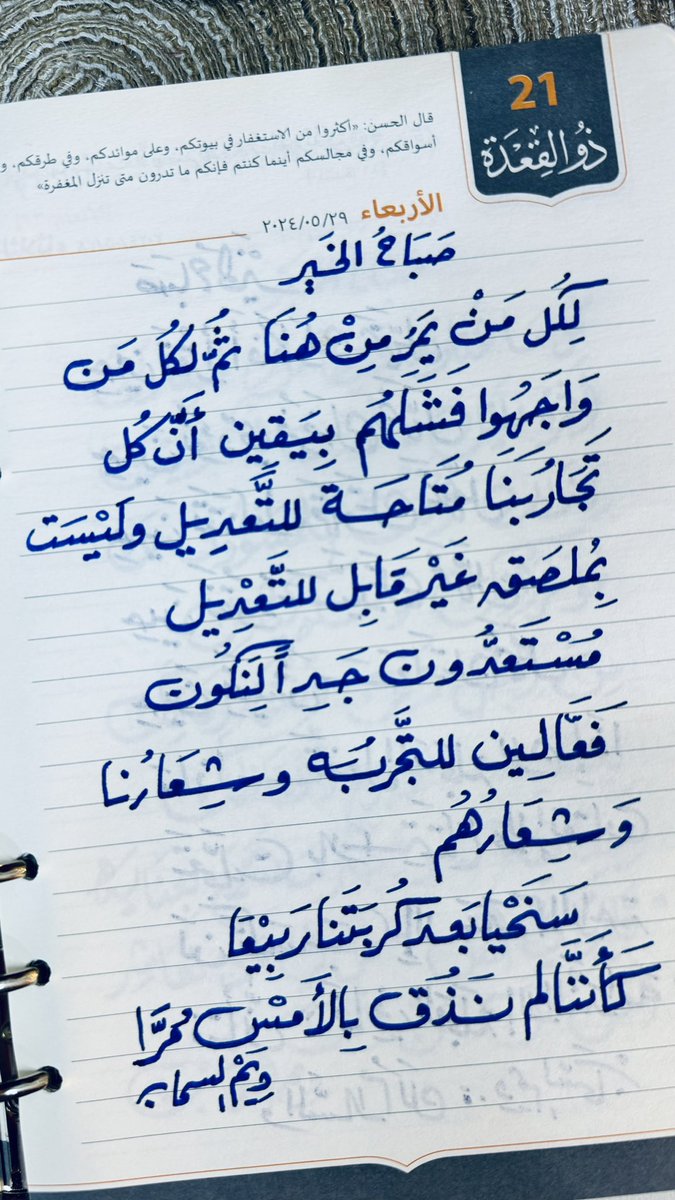 21
ذو القعدة
قال الحسن: «أكثروا من الاستغفار في بيوتكم، وعلى موائدكم، وفي طرقكم، و
أسواقكم، وفي مجالسكم أينما كنتم فإنكم ما تدرون متى تنزل المغفرة»
الأربعاء ٢٠٢٤/٠٥/٢٩
صَبَاحُ الخَير
لِكُل مَنْ يَمُر مِنْ هُنَا ثُمَّ لكُل مَن
وَاجَهُوا فَشَلهُم بِيَقين أَنَّ كُل
تَجَارُبَنَا مُتَاحَة للتَّعدِيل وَلَيْسَت
بِمُلصَق غَيْر قَابِل للتَّعْدِيل
مُسْتَعدُّون جَداً لِنَكُون
فَعَّالِين للتَّجرُبَه وشِعَارُنا
وَشِعَارهُم
سَنَحْيا بَعدَ كُربَتَنا رَبِيْعَا
كَأَنَّنَا لم نَذُق بِالأَمسِ مُرَّا